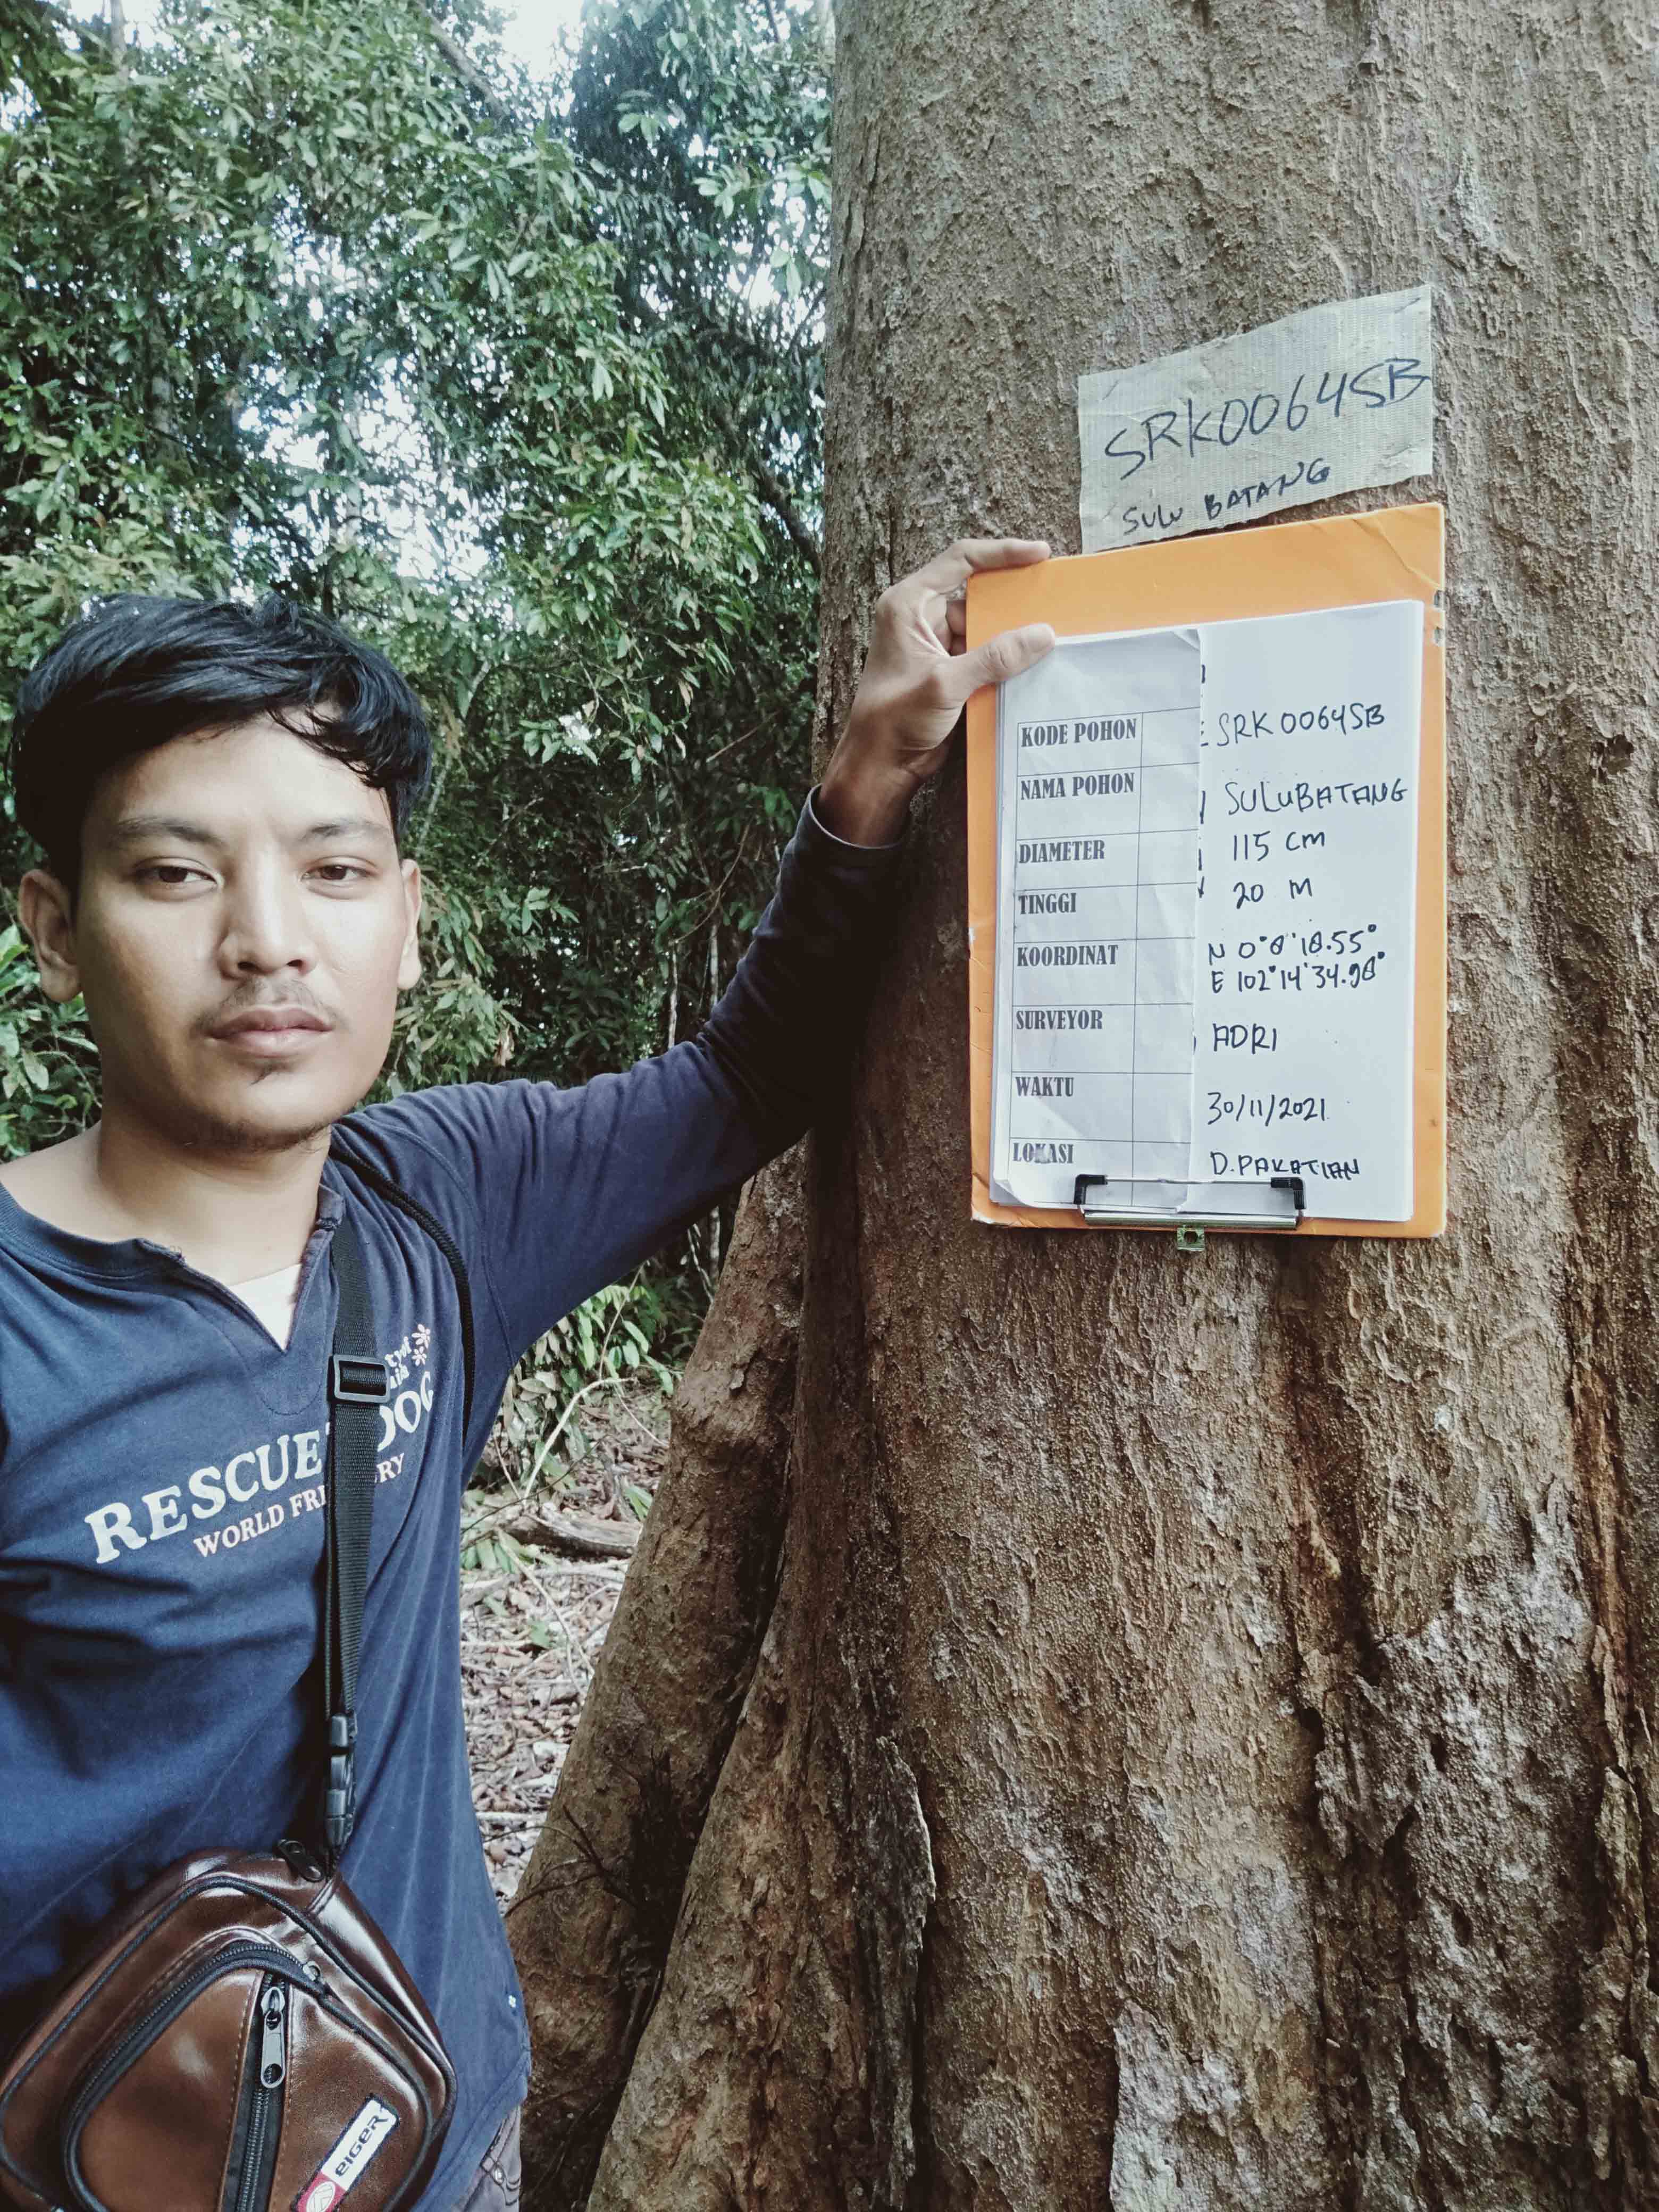 SRK0064SB
SULU BATANG
KODE POHON SRK0064SB
NAMA POHON SULUBATANG
DIAMETER 115 cm
TINGGI 20 M
KOORDINAT N 0°8'18.55°
E 102°14'34.98°
SURVEYOR ADRI
WAKTU 30/11/2021
LOKASI D.PAKATIAN
RESCUE DOG
WORLD
EIGER